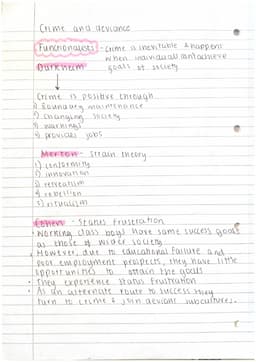 Crime and deviance
Functionalists - Crime is inevitable & happens
when individual cant achieve
goals of society
Durkheim
Crime is positive through
1) Boundary maintenance
2) changing society
3) warnings
4) provides jobs
Merton - Strain theory
1) conformity
2) innovation
3) retreatism
4) rebellion
5) ritualism
Cohen - Status Frustration
• Working class boys have same success goals
as those of wider society
• However, due to educational failure and
poor employment prospects, they have little
opportunities to attain the goals
• They experience status frustration
• As an alternate route to success they
turn to crime & join deviant subculture.